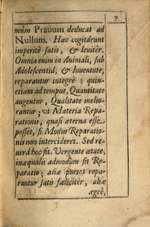 7
nuim Prauum deducat ad
Nullum. Hæc cogitârunt
imperitè satis, & leuiter.
Omnia enim in Animali, sub
Adolescentiâ, & Iuuentute,
reparantur integrè; quin-
etiam ad tempus, Quantitate
augentur, Qualitate melio-
rantur; vt Materia Repa-
rationis, quasi æterna esse
posset, si Modus Reparatio-
nis non intercideret. Sed re-
uerâ hoc fit. Vergente ætate,
inæqualis admodum fit Re-
paratio; aliæ partes repa-
rantur satis fœlicitèr, aliæ
ægrè,